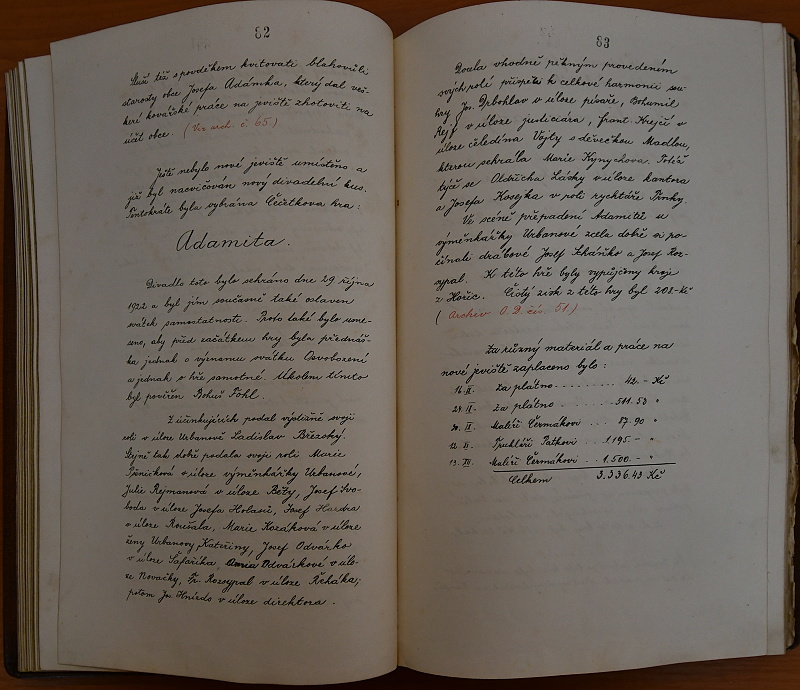 82
Sluší též s povděkem kvitovati blahovůli
starosty obce Josefa Adámka, který dal veš-
keré kovářské práce na jeviště zhotoviti na
účet obce. (Viz arch. č. 65.)
Ještě nebylo nové jeviště umístěno a
již byl nacvičován nový divadelní kus.
Tentokráte byla vybrána Čížkova hra:
Adamita.
Divadlo toto bylo sehráno dne 29. října
1922 a byl jím současně také oslaven
svátek samostatnosti. Proto také bylo usne-
seno, aby před začátkem hry byla přednáš-
ka jednak o významu svátku Osvobození
a jednak o hře samotné. Úkolem tímto
byl pověřen Bohuš Fohl.
Z účinkujících podal výstižně svoji
roli v úloze Urbanově Ladislav Březský.
Stejně tak dobře podala svoji roli Marie
Pěničková v úloze výměnkářky Urbanové,
Julie Rejmanová v úloze Běty, Josef Svo-
boda v úloze Josefa Holasů, Josef Hardra
v úloze Roušala, Marie Kozáková v úloze
ženy Urbanovy Kateřiny, Josef Odvárko
v úloze Šafaříka, Odvárkové v úlo-
ze Novačky, Fr. Rozsypal v úloze Řeháka,
potom Jos. Hnízdo v úloze direktora.
83
Docela vhodně pěkným provedením
svých rolí přispěli k celkové harmonii sou-
hry Jos. Drbohlav v úloze písaře, Bohumil
Rejf v úloze justiciára, Frant. Krejčí v
úloze čeledína Vojty s děvečkou Madlou,
kterou sehrála Marie Kynychova. Totéž
týče se Oldřicha Lásky v úloze kantora
a Josefa Kosejka v roli rychtáře Pinky.
Ve scéně přepadení Adamitů u
výměnkářky Urbanové zcela dobře si po-
činali drábové Josef Skářko a Josef Roz-
sypal. K této hře byly vypůjčeny kroje
z Hořic. Čistý zisk z této hry byl 202.- Kč
(Archiv O.D. čís. 51.)
Za různý materiál a práce na
nové jeviště zaplaceno bylo:
16. II. Za plátno - - - - - - - - 42.- Kč
24. II. Za plátno - - - - - - - - 511.53 "
20. II. Malíři Čermákovi . . . 87.90 "
12. II. Truhláři Patkovi . . . 1.195.- "
13. XII. Malíři Čermákovi . . 1.500.- "
Celkem 3.336.43 Kč